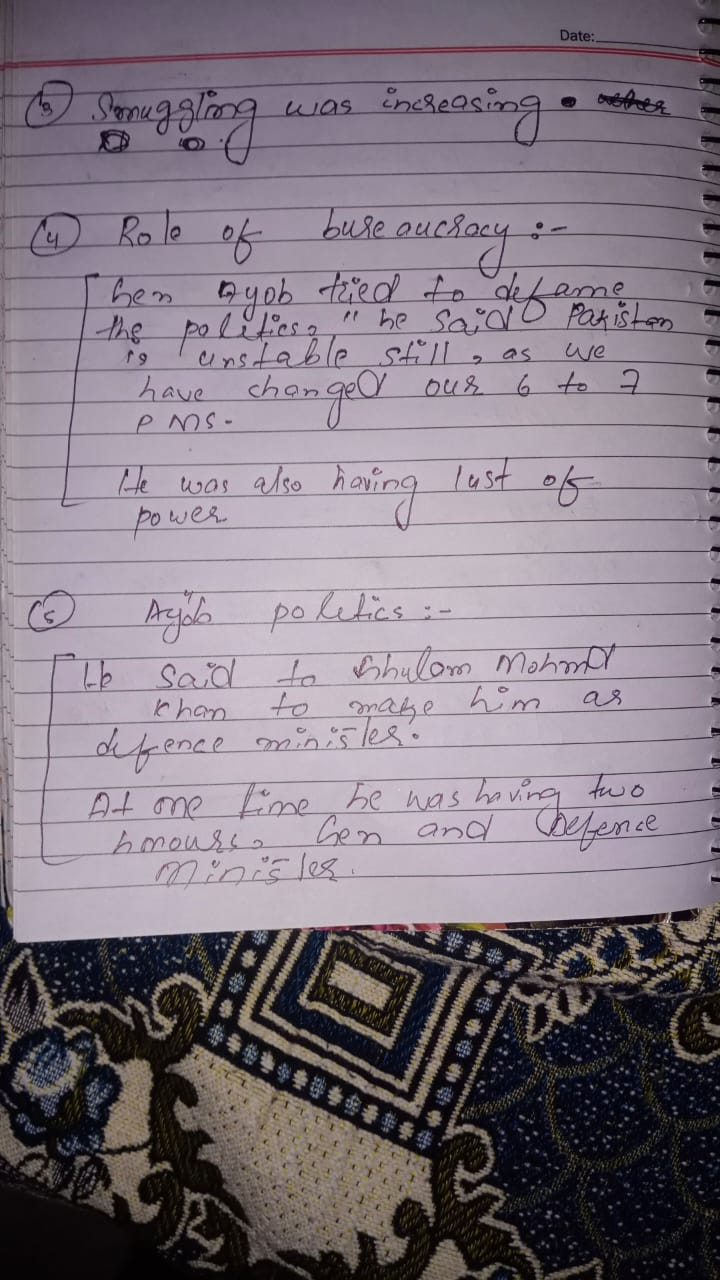 Date:
(3) Smuggling was increasing.
(4) Role of bureaucracy :-
Gen Ayob tried to defame
the politics, " he said Pakistan
is unstable still, as we
have changed our 6 to 7
PMS-
He was also having lust of
power
(5) Ayob poletics :-
He said to Ghulam Mohmd
Khan to make him as
defence minister.
At one time he was having two
honours, Gen and Defence
Minister.